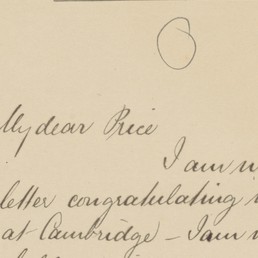 My dear Price
I am
letter congratulating
at Cambridge – I am